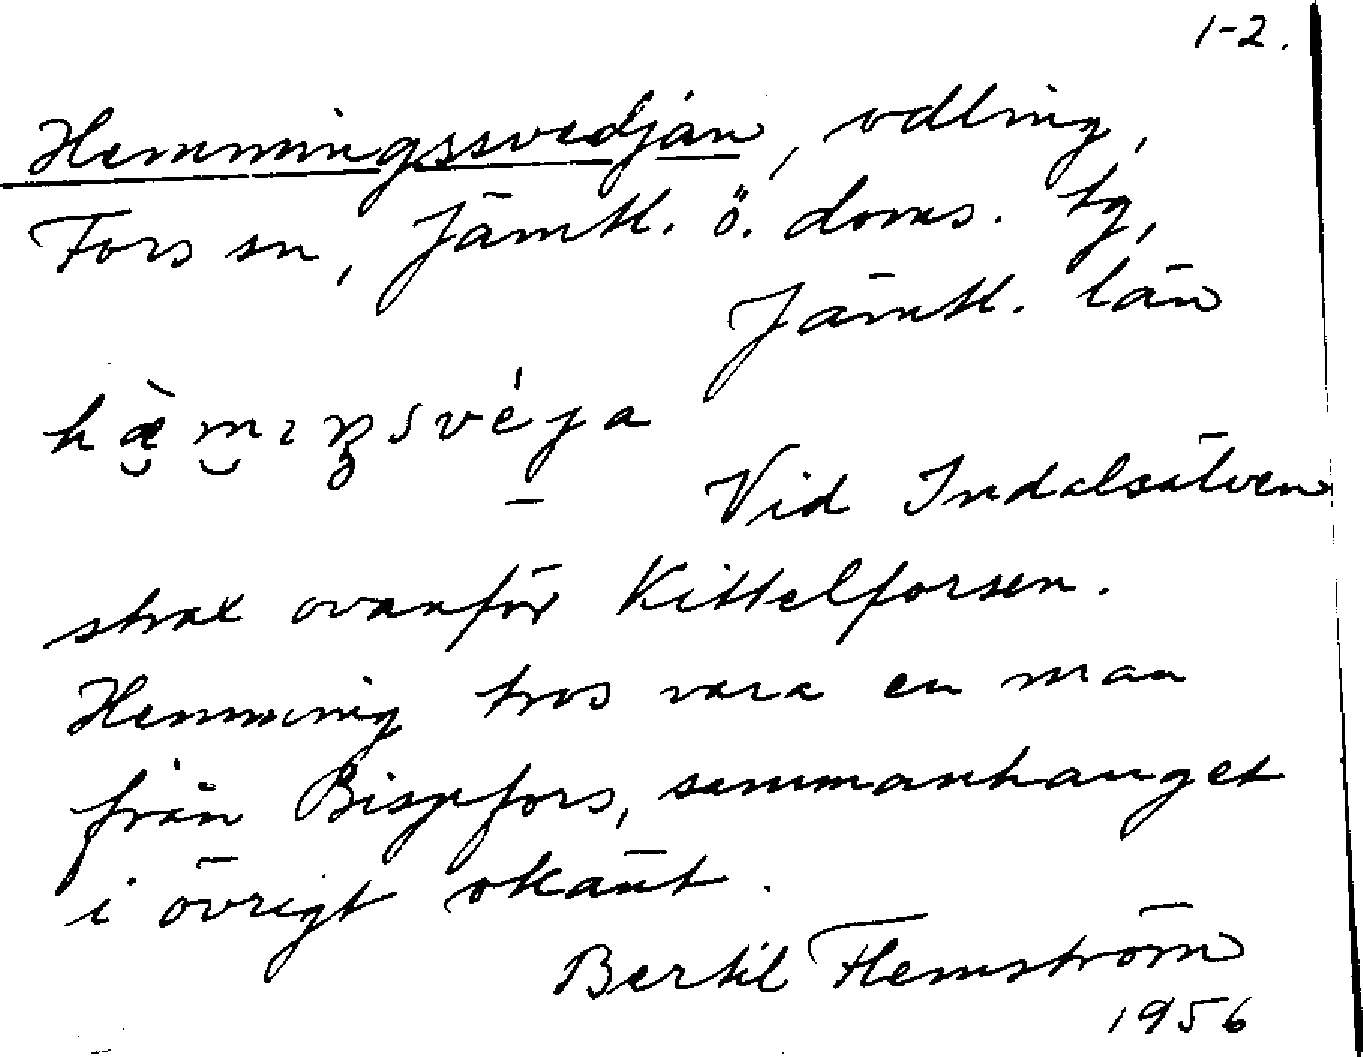 1-2.
Hemmingssvedjan, odling,
Fors sn, Jämtl. ö. doms. tg,
Jämtl. län
hæ̀mıŋsvéja
Vid Indalsälven
strax ovanför Kittelforsen.
Hemming tros vara en man
från Bispfors, sammanhanget
i övrigt okänt.
Bertil Flemström
1956